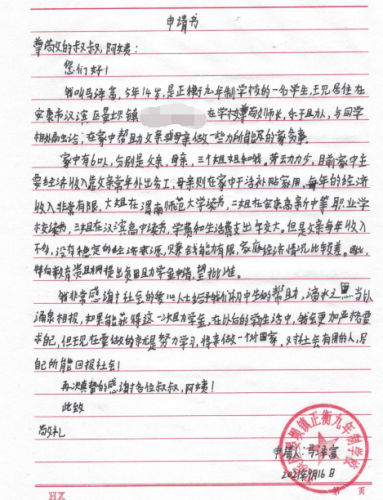 申请书
尊敬的叔叔,阿姨:
您们好!
我叫马泽富,今年14岁,是正衡九年制学校的一名学生,现居住在
安康市汉滨区晏坝镇 在学校尊敬师长,乐于助人,与同学
和睦相处;在家中帮助父亲或母亲做一些力所能及的家务事.
家中有6口人,分别是父亲,母亲,三个姐姐和我,劳动力少,目前家中主
要经济收入靠父亲常年外出务工,母亲则在家中干活补贴家用,每年的经济
收入非常有限,大姐在渭南师范大学读书,二姐在安康高新中等职业学
校读书,三姐在汉滨高中读书,学费和生活费支出年年大,但是父亲每年收入
不多,没有稳定的经济来源,赚钱能力有限,家庭经济情况比较差.因此,
特向教育资助网提出贫困助学金申请,望批准.
我非常感谢社会的爱心人士给予我们初中生的帮助,滴水之恩当以
涌泉相报,如果能获得这一次助学金,在以后的学生活中,我会更加严格要
求自己,但现在要做的就是努力学习,将来做一个对国家,对社会有用的人,尽
自己所能回报社会!
再次真挚的感谢各位叔叔,阿姨!
此致
敬礼
申请人:马泽富
2021年9月16日
晏坝镇正衡九年制学校
HX
第 页